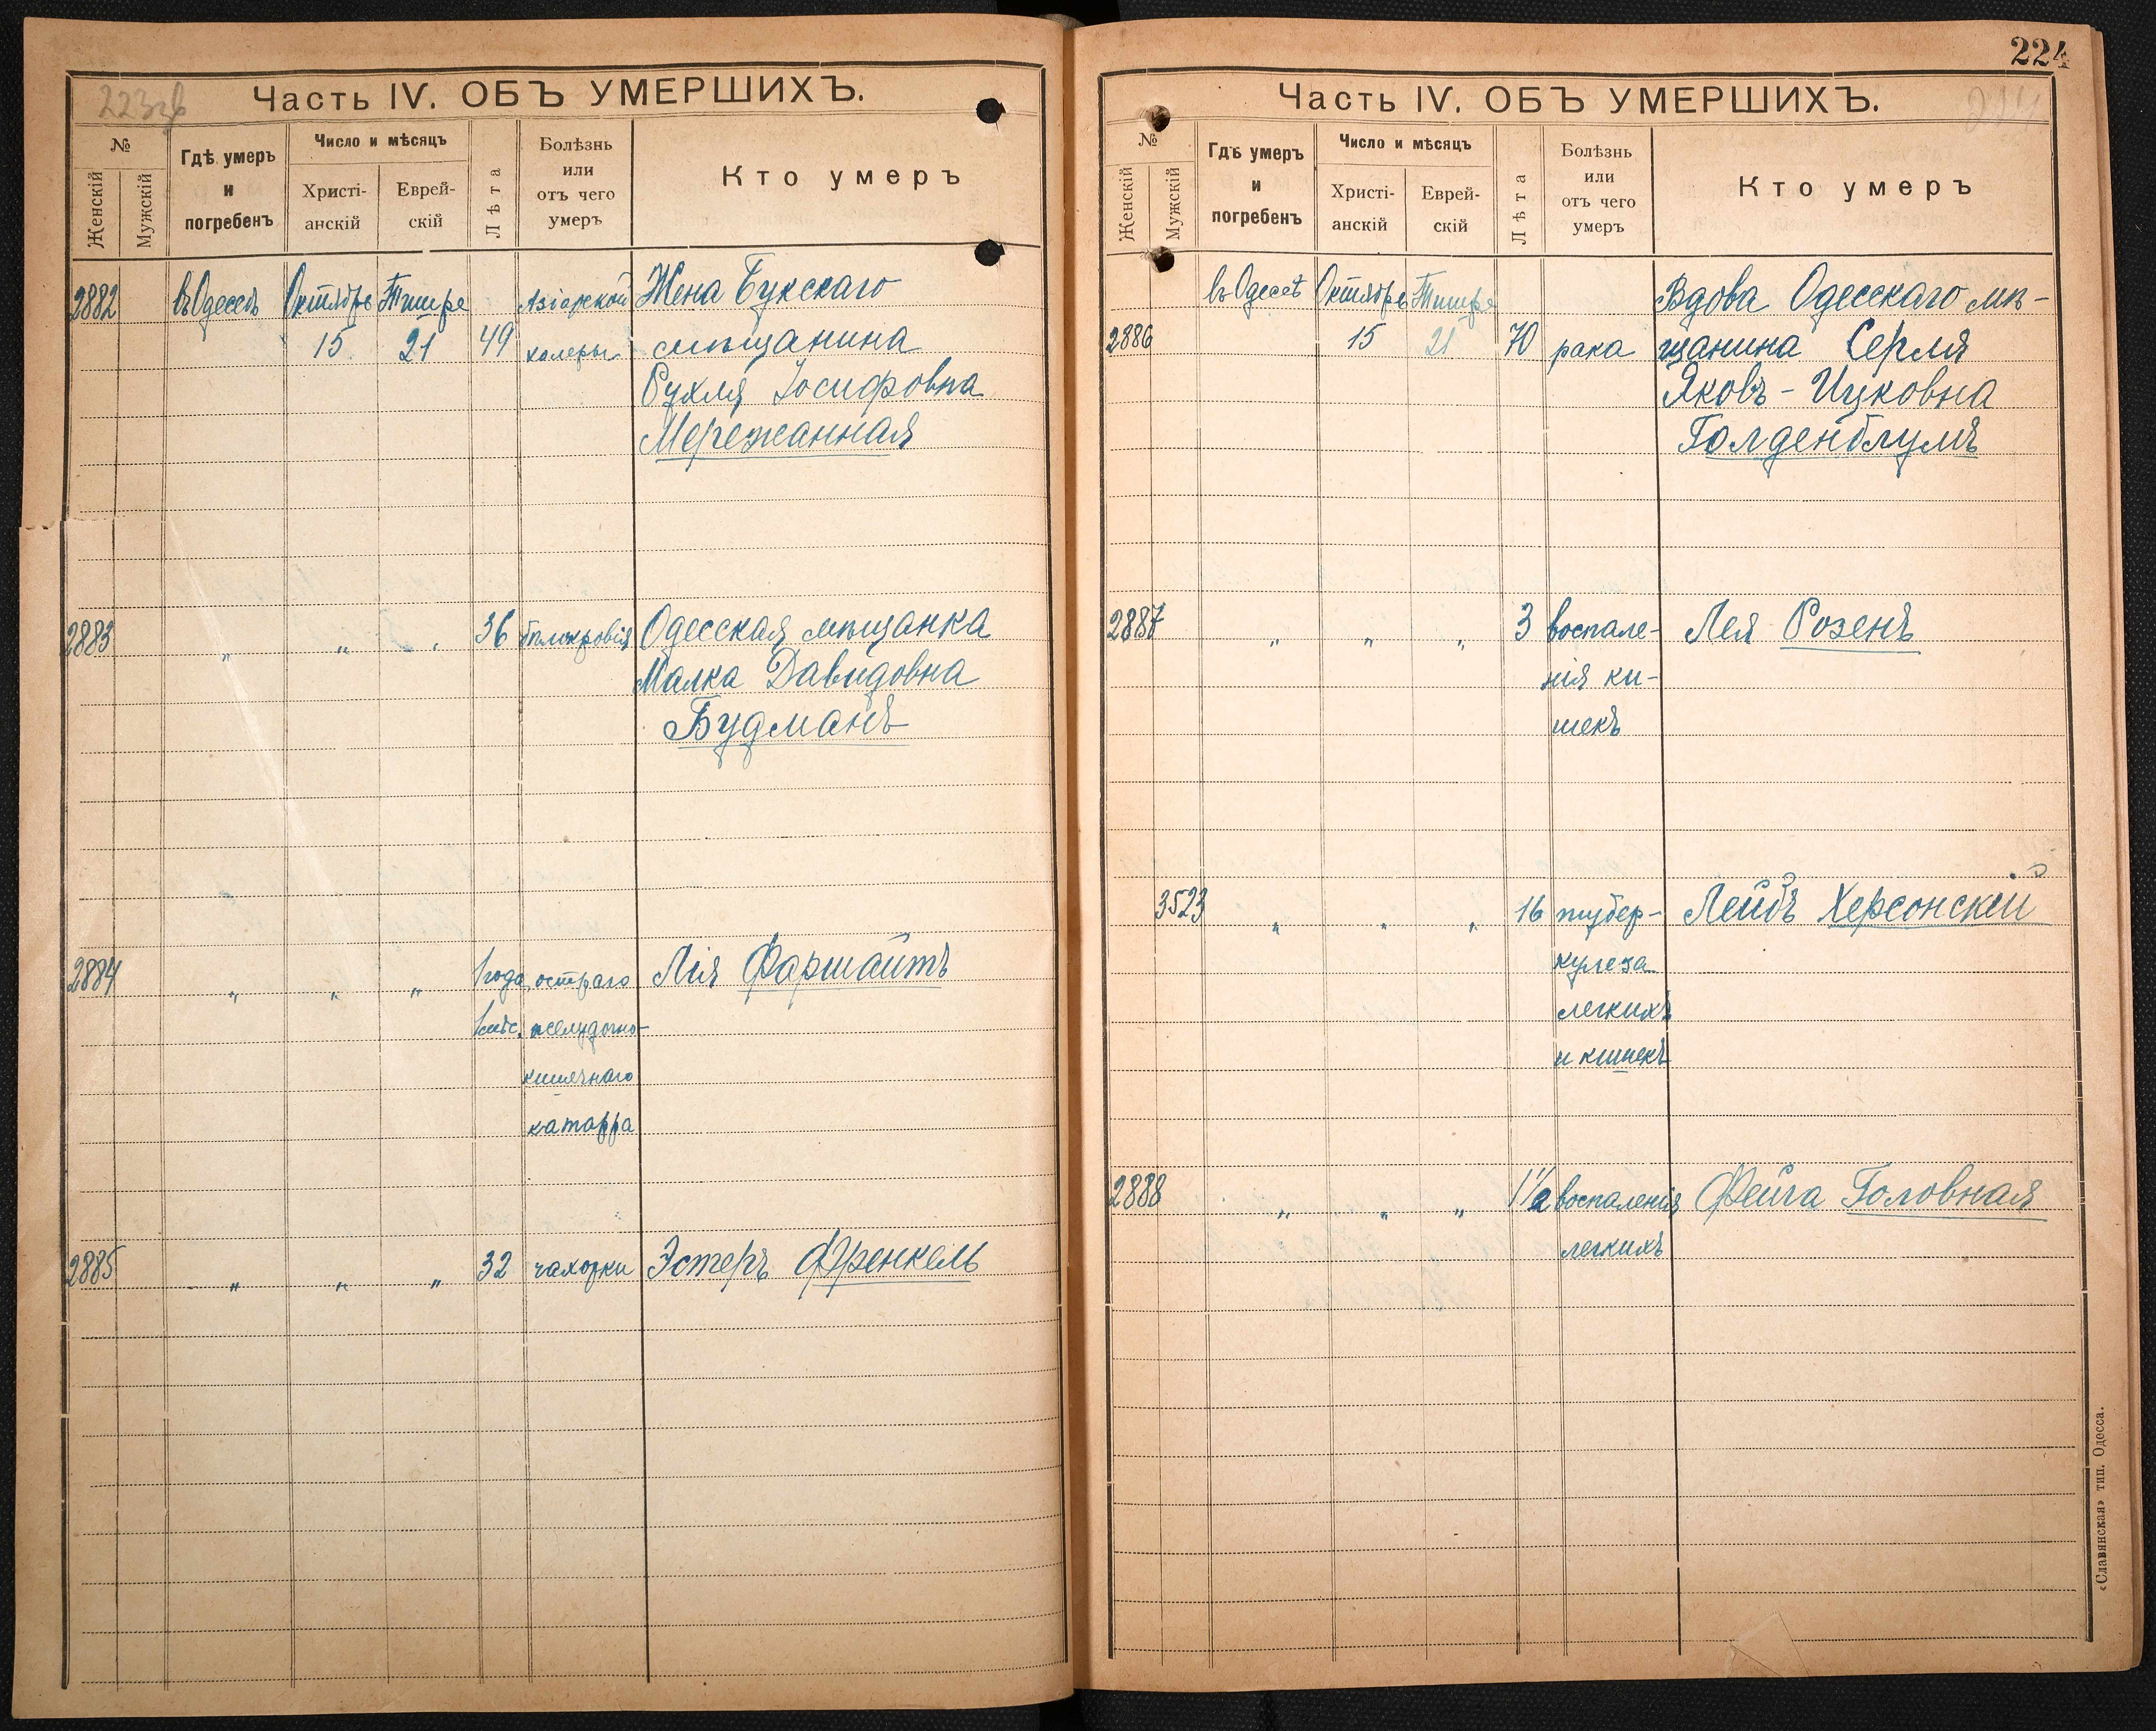 223об
Часть IV. ОБЪ УМЕРШИХЪ.
№
Женскій
Мужскій
Гдѣ умеръ
и
погребенъ
Число и мѣсяцъ
Христі-
анскій
Еврей-
скій
Лѣта
Болѣзнь
или
отъ чего
умеръ
Кто умеръ
2882 въ Одессѣ Октябрь Тишре Азіарской Жена Букскаго
15 21 49 холеры мѣщанина
Рухля Іосифовна
Мережанная
2883 „ „ „ 36 бѣлокровія Одесская мѣщанка
Малка Давидовна
Будманъ
2884 „ „ „ 1 года остраго Лія Фаршайтъ
1 мѣс. желудочно-
кишечнаго
катарра
2885 „ „ „ 32 чахотки Эстеръ Френкель
224
Часть IV. ОБЪ УМЕРШИХЪ.
224
№
Женскій
Мужскій
Гдѣ умеръ
и
погребенъ
Число и мѣсяцъ
Христі-
анскій
Еврей-
скій
Лѣта
Болѣзнь
или
отъ чего
умеръ
Кто умеръ
въ Одессѣ Октябрь Тишре Вдова Одесскаго мѣ-
2886 15 21 70 рака щанина Серля
Яковъ-Ицковна
Голденблумъ
2887 „ „ „ 3 воспале- Лея Розенъ
нія ки-
шекъ
3523 „ „ „ 16 тубер- Лейбъ Херсонскій
кулеза
легкихъ
и кишекъ
2888 „ „ „ 1½ воспаленія Фейга Головная
легкихъ
«Славянская» тип. Одесса.